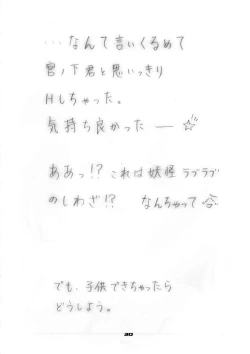 ...なんて言いくるめて
宮ノ下君と思いっきり
Hしちゃった。
気持ち良かった──☆
ああっ!? これは妖怪ラブラブ
のしわざ!? なんちゃって
でも、子供できちゃったら
どうしよう。
30